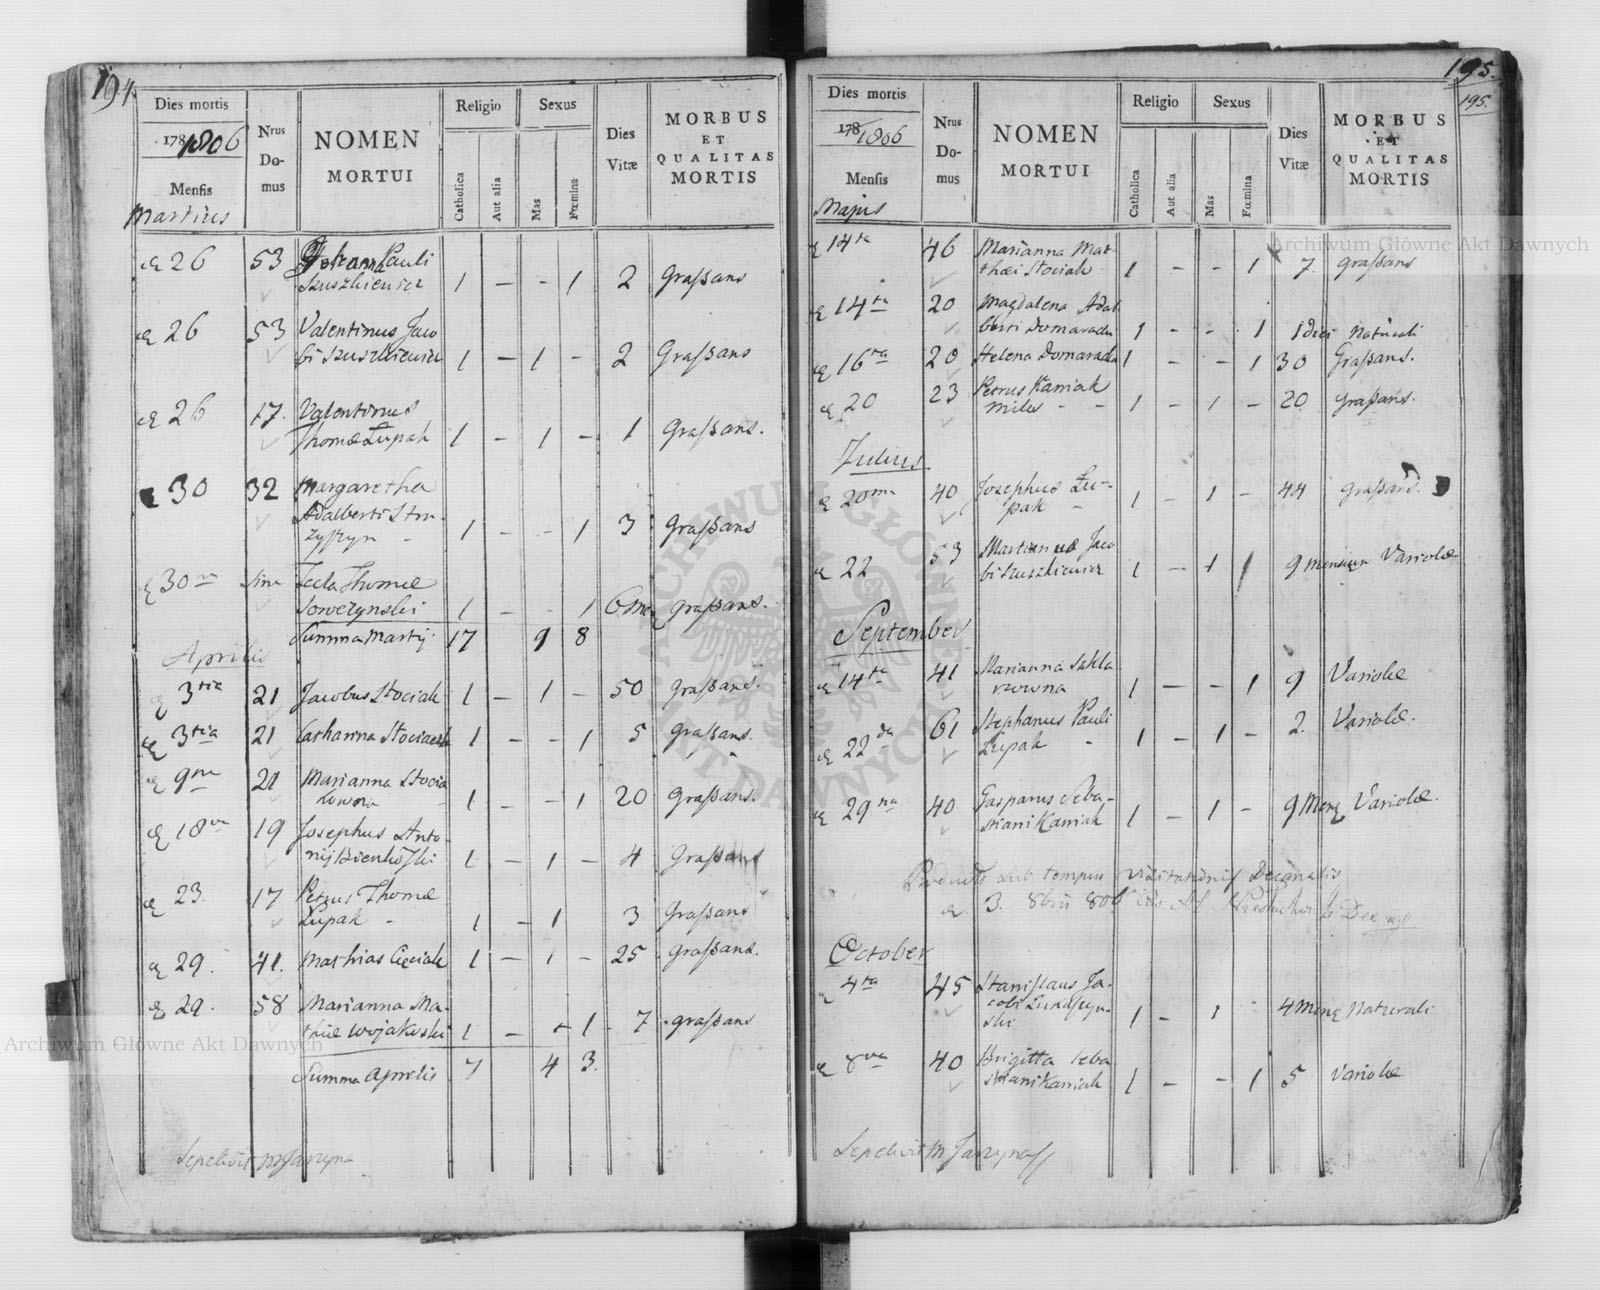 194.
Dies mortis
1781806
Mensis
Martius
Nrus Domus
NOMEN MORTUI
Religio
Catholica
Aut alia
Sexus
Mas
Fœmina
Dies Vitæ
MORBUS ET QUALITAS MORTIS
26 53 Pauli
Szuszkiewicz 1 – - 1 2 Graſsans
26 53 Valentinus Jaco
bi Szuszkiewicz 1 – 1 – 2 Graſsans
26 17. Valentinus
Thomæ Łupak 1 – 1 – 1 Graſsans.
30 32 Margaretha
Adalberti
1 – - 1 3 graſsans
30 Sine Tecla Thomæ
1 – - 1 6 graſsans.
Summa Martij. 17 9 8
Aprilis
3tia 21 Jacobus Stociak 1 – 1 – 50 graſsans.
3tia 21 Catharina 1 – - 1 5 graſsans.
9na 21 Marianna Stocia
kowna 1 - - 1 20 graſsans.
18va 19 Josephus Anto
nij 1 – 1 – 4 graſsans
23. 17 Petrus Thomæ
Łupak - 1 – 1 3 Graſsans
29. 41. Mathias 1 – 1 – 25 graſsans.
29. 58 Marianna Ma-
thiæ Wojakoski 1 – + 1 7 graſsans
Summa Aprilis 7 4 3.
Sepelivit M Jarzyna
195.
195.
Dies mortis
178/1806
Mensis
Majus
Nrus Domus
NOMEN MORTUI
Religio
Catholica
Aut alia
Sexus
Mas
Fœmina
Dies Vitæ
MORBUS ET QUALITAS MORTIS
14ta 46 Marianna Mat-
thæi Stociak 1 – - 1 7. graſsans
14ta 20 Magdalena Adal
berti Domarada 1 – - 1 1 diei Naturali
16ta 20 Helena Domarada 1 – - 1 30 Graſsans.
20 23 Petrus Kaniak
miles - - 1 - 1 – 20 graſsans.
Julius
20ma 40 Josephus Łu-
pak - 1 – 1 – 44 graſsans.
22 53 Martinus Jaco
bi Szuszkiewicz 1 – 1 9 mensium Variolæ
September
14ta 41 Marianna Szkla
rzowna 1 – - 1 9 Variolæ
22da 61 Stephanus Pauli
Łupak - 1 – 1 – 2. Variolæ.
29na 40 Gasparus Seba-
stiani Kaniak 1 – 1 – 9 Variolæ.
sub tempus Visitationis Decanalis
3. 8bris 806
October
4ta 45 Stanislaus Ja-
cobi
ski 1 - 1 4 Naturali
8va 40 Brigitta Seba
stiani Kaniak 1 – - 1 5 Variolæ
Sepelivit M Jarzyna
Archiwum Główne Akt Dawnych
Archiwum Główne Akt Dawnych
ARCHIWUM GŁÓWNE AKT DAWNYCH